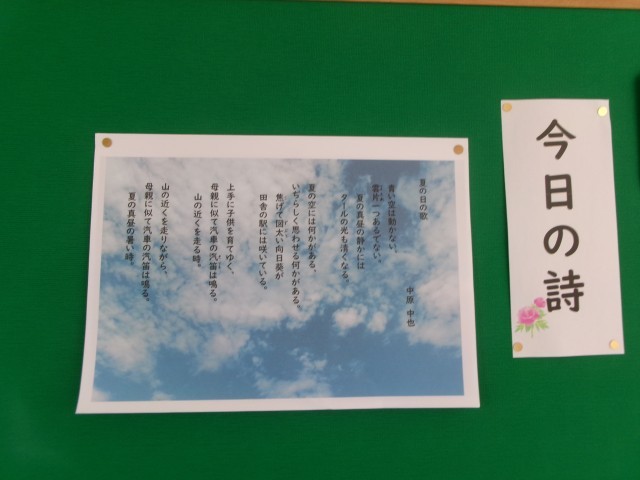 今日の詩
夏の日の歌
中原 中也
青い空は動かない、
雲片一つあるでない。
夏の真昼の静かには
タールの光も清くなる。
夏の空には何かがある、
いぢらしく思わせる何かがある、
焦げて図太い向日葵が
田舎の駅には咲いている。
上手に子供を育てゆく、
母親に似て汽車の汽笛は鳴る。
山の近くを走る時。
山の近くを走りながら、
母親に似て汽車の汽笛は鳴る。
夏の真昼の暑い時。